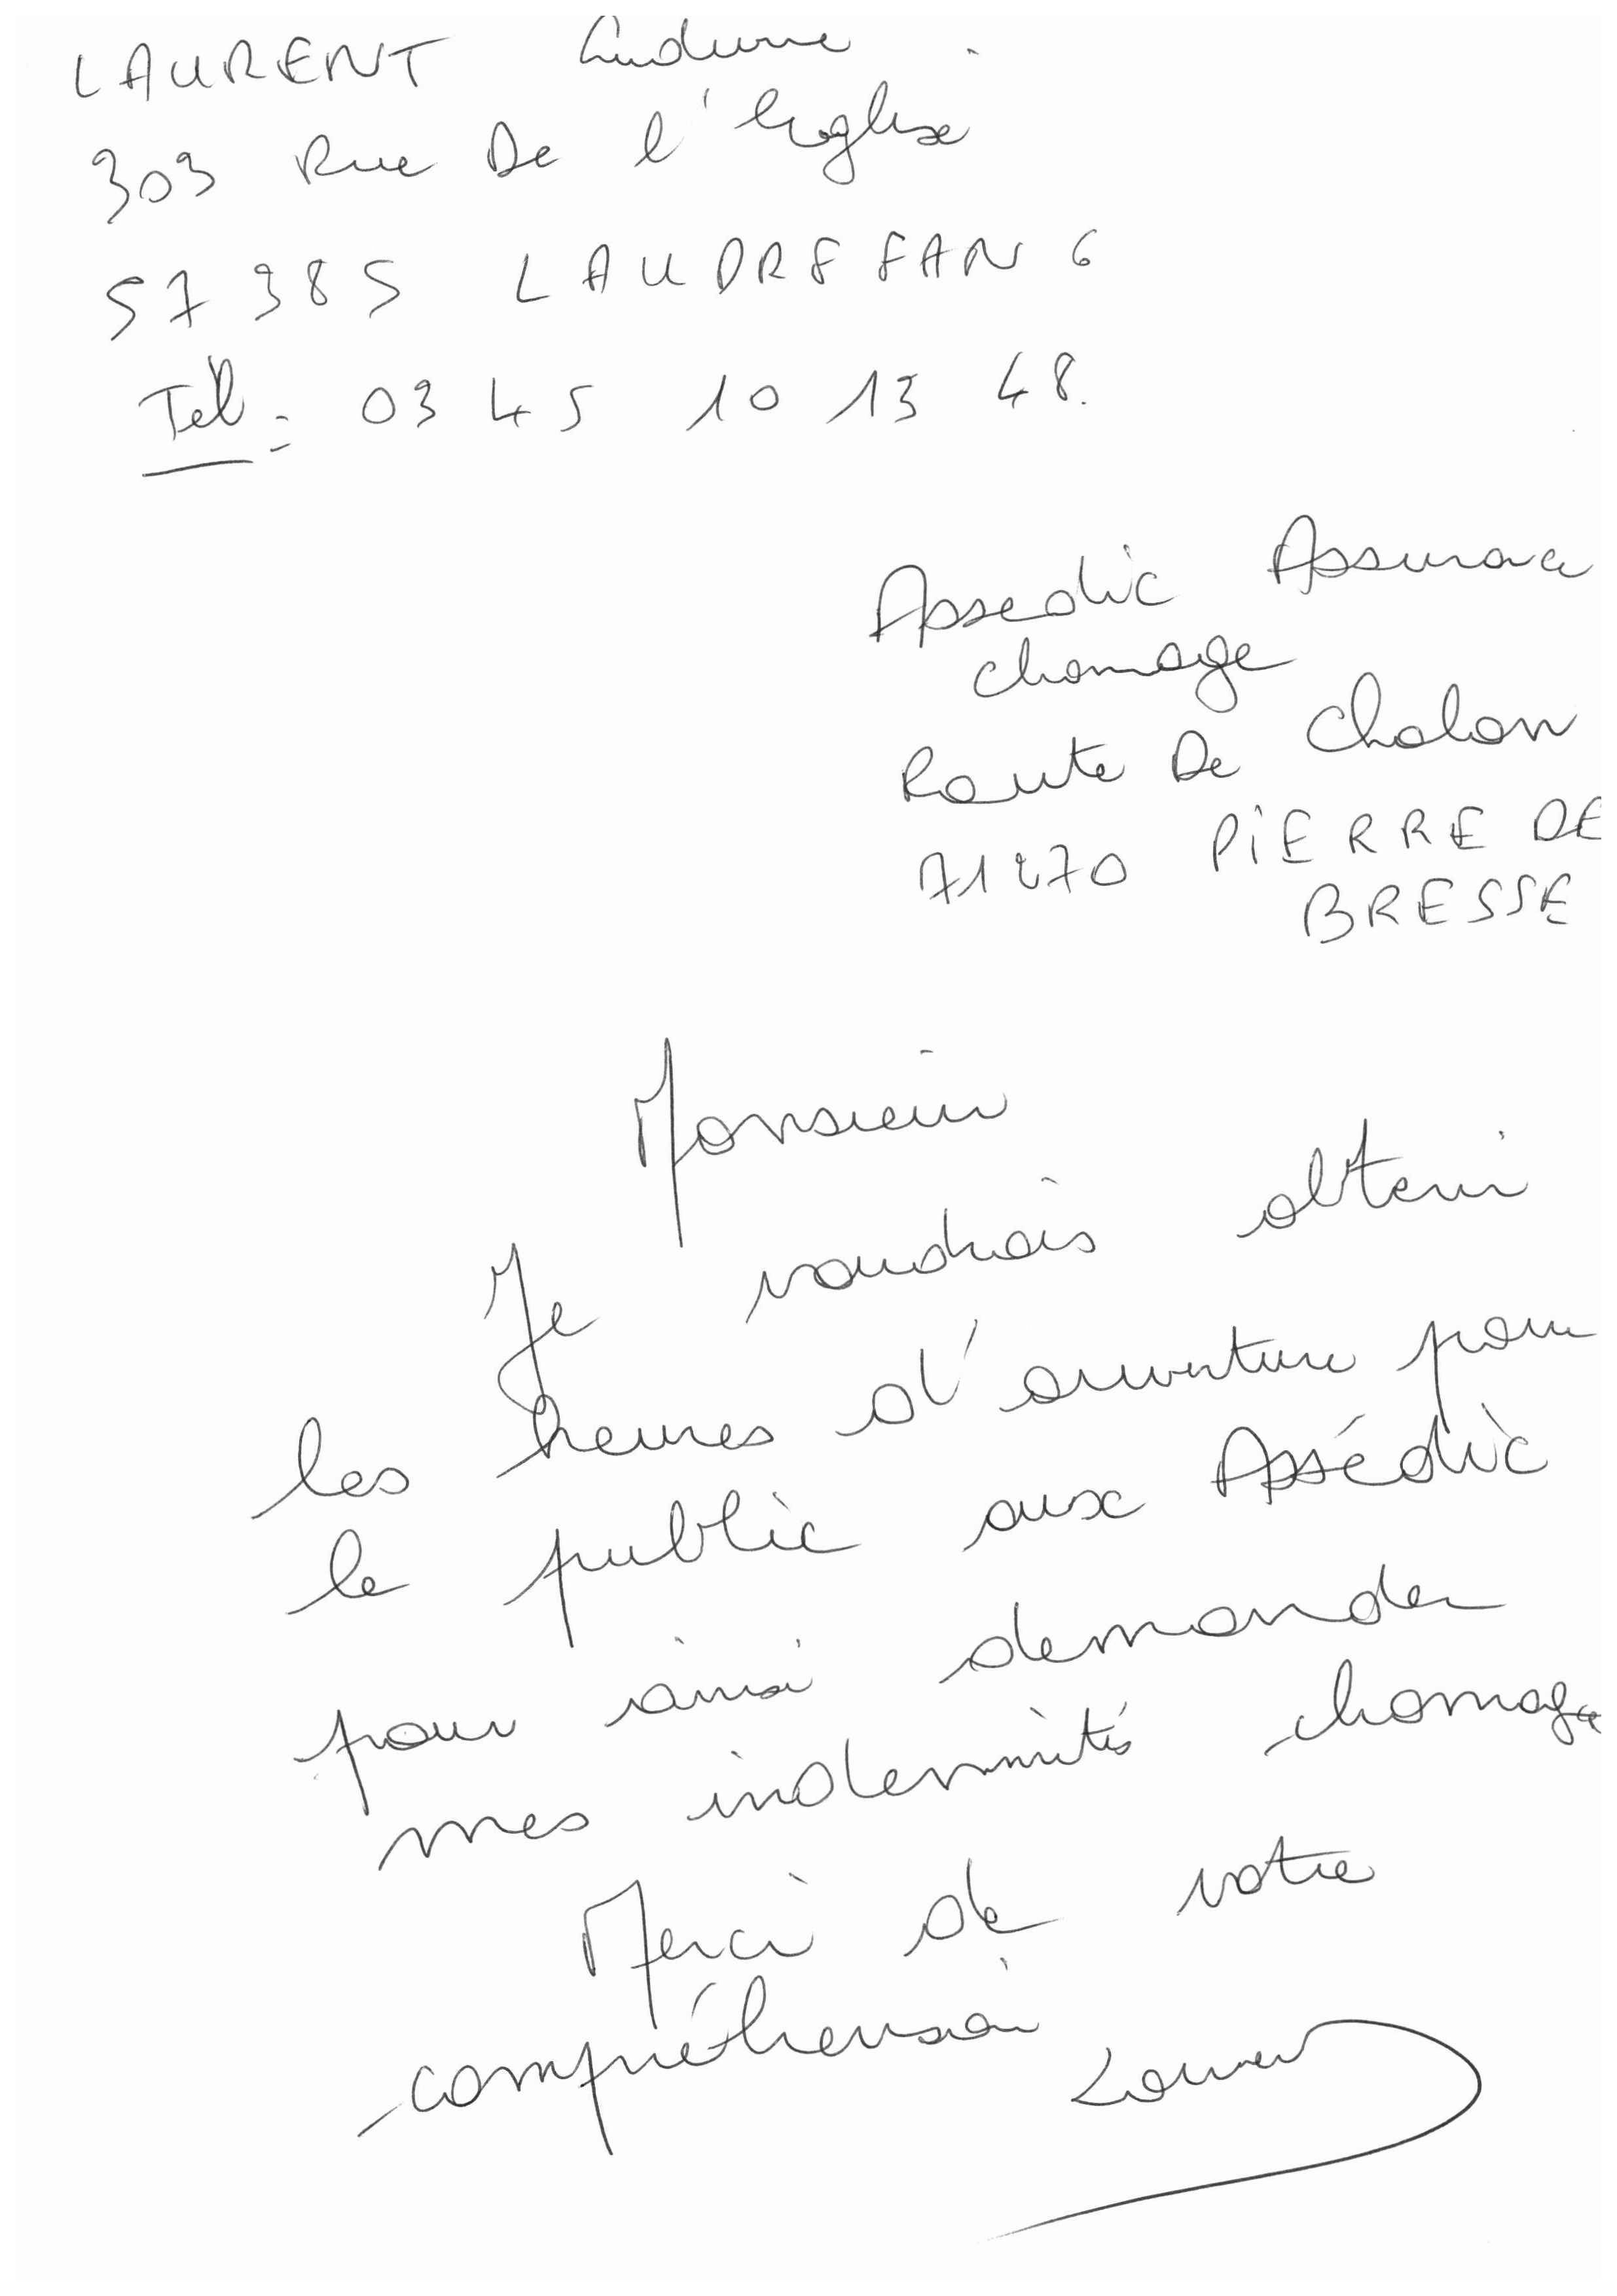 LAURENT Ludivine
303 Rue De l'Eglise
57385 LAUDREFANG
Tel : 03 45 10 13 48.
Assedic Assurance
chomage
Route De Chalon
71270 PIERRE DE
BRESSE
Monsieur
Je voudrais obtenir
les heures d'ouverture pour
le public aux Assédic
pour ainsi demander
mes indemnités chomage
Merci de votre
compréhension
Laurent